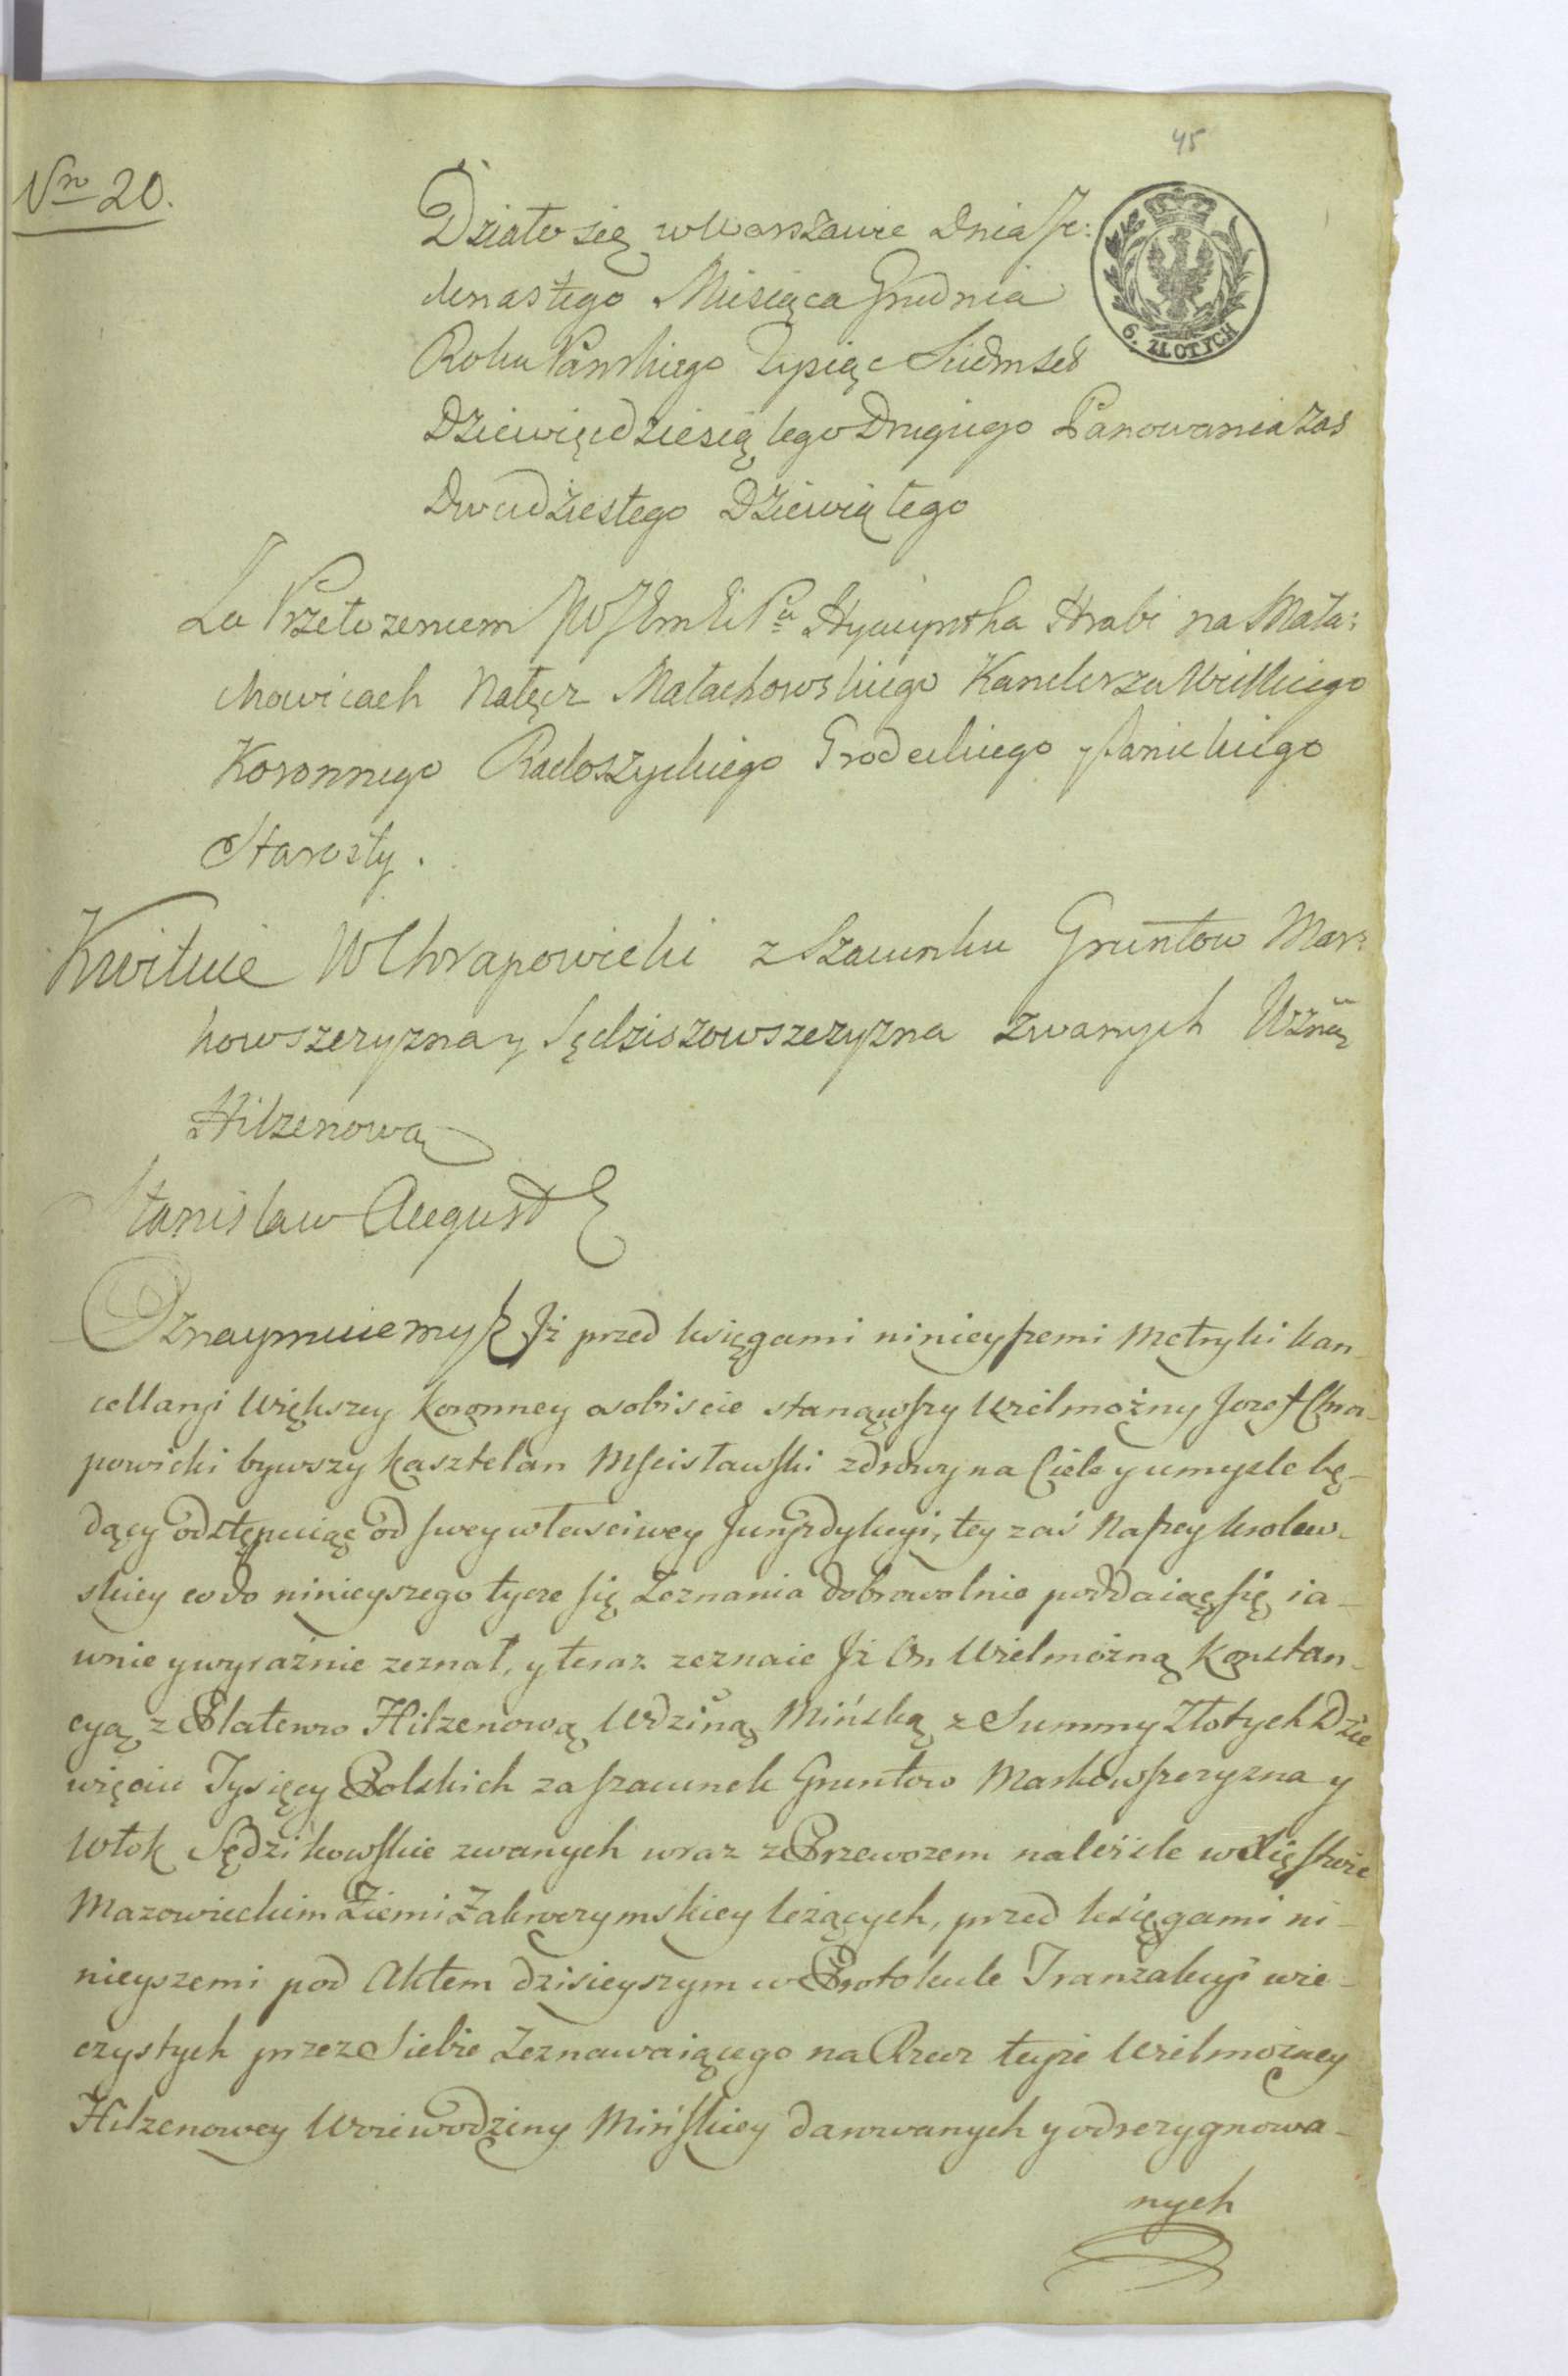 45
Nro 20.
Działo się w Warszawie Dnia Je:
denastego Miesiąca Grudnia
6. ZŁOTYCH
Roku Pańskiego Tysiąc Siedmset
Dziewięćdziesiątego Drugiego Panowania zaś
Dwudziestego Dziewiątego
Za Przełożeniem JW JEmści Pa Hyacyntha Hrabi na Mała:
chowicach Nałęcz Małachowskiego Kanclerza Wielkiego
Koronnego Radoszyckiego Grodeckiego y Sanickiego
Starosty.
Kwituie W Chrapowicki z Szacunku Gruntow Mar:
kowszczyzna y Sędziszowszczyzna zwanych Wżną
Hilzenową
Stanisław August &
Oznaymuiemy & Iż przed księgami ninieyszemi Metryki kan-
cellaryi Większey koronney osobiscie stanąwszy Wielmożny Jozef Chra-
powicki bywszy kasztelan Mscisławski zdrowy na Ciele y umysle bę-
dący odstępuiąc od swey własciwey Juryzdykcyi, tey zaś Naszey krolew-
skiey co do ninieyszego tycze się Zeznania dobrowolnie poddaiąc się ia-
wnie y wyraźnie zeznał, y teraz zeznaie Iż On Wielmożną Konstan-
cyą z Platerow Hilzenową Wdziną Mińską z Summy Złotych Dzie
więciu Tysięcy Polskich za szacunek Gruntow Markowszczyzna y
Włok Sędzikowskie zwanych wraz z Przewozem należcie w Xięstwie
Mazowieckim Ziemi Zakroczymskiey leżących, przed księgami ni-
nieyszemi pod Aktem dzisieyszym w Protokule Tranzakcyi wie-
czystych przez Siebie Zeznawaiącego na Rzecz teyże Wielmożney
Hilzenowey Woiewodziny Mińskiey darowanych y odrezygnowa-
nych